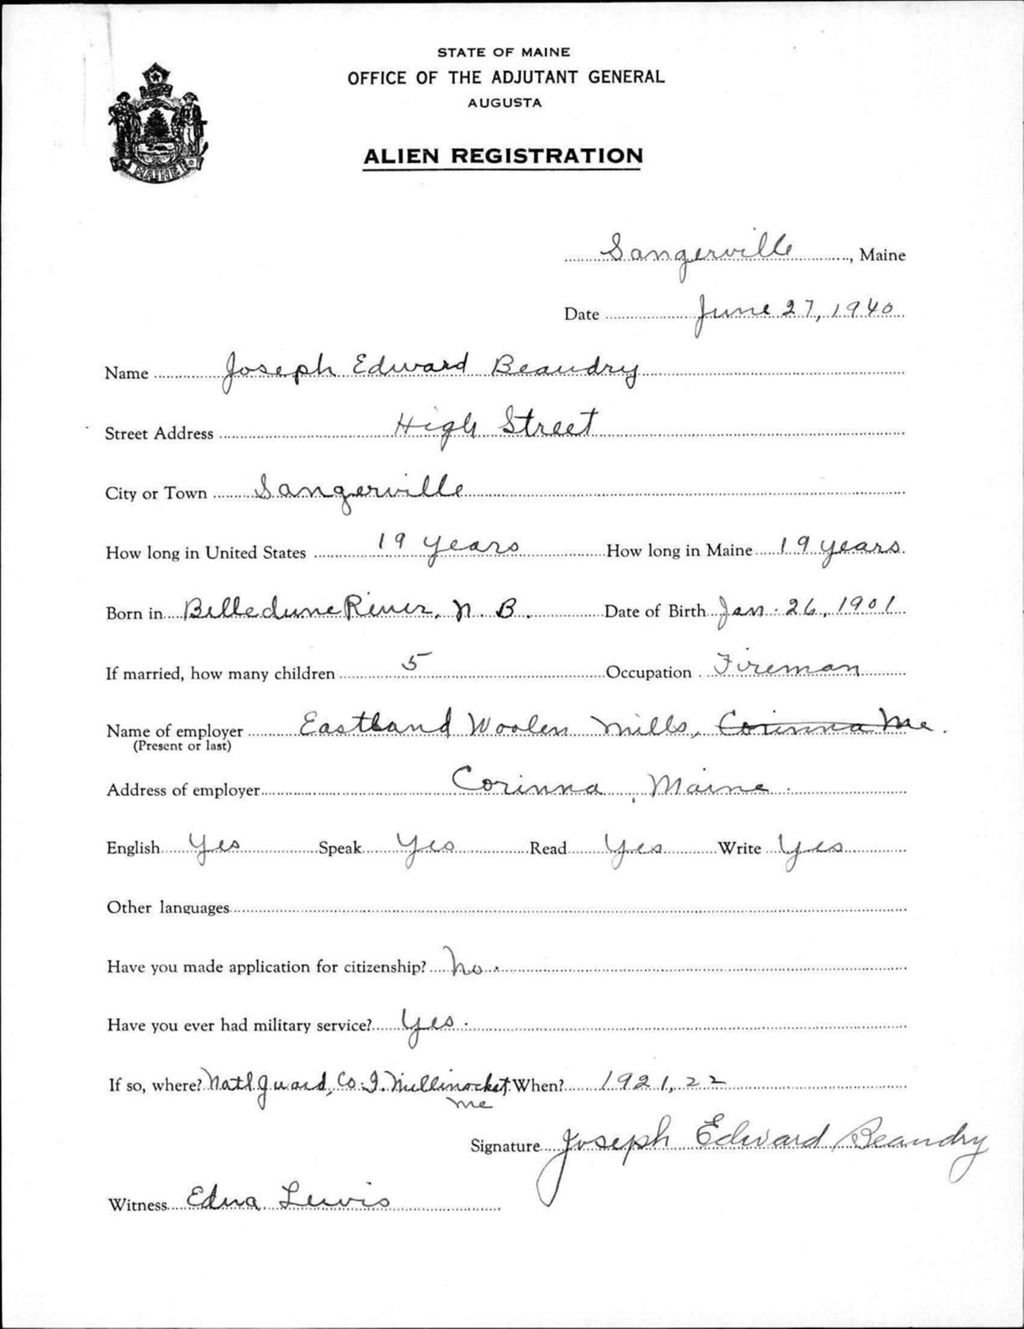 STATE OF MAINE
OFFICE OF THE ADJUTANT GENERAL
AUGUSTA
ALIEN REGISTRATION
MAINE
Sangerville, Maine
Date June 27, 1940
Name Joseph Edward Beaudry
Street Address High Street
City or Town Sangerville
How long in United States 19 years How long in Maine 19 years.
Born in Belledune River, N. B. Date of Birth Jan. 26, 1901
If married, how many children 5 Occupation Fireman
Name of employer Eastland Woolen Mills, Corinna Me.
(Present or last)
Address of employer Corinna, Maine.
English Yes Speak Yes Read Yes Write Yes
Other languages
Have you made application for citizenship? No.
Have you ever had military service? Yes.
If so, where? Natl guard, Co. I. Millinocket, When? 1921, 22
Me
Signature Joseph Edward Beaudry
Witness Edna Lewis